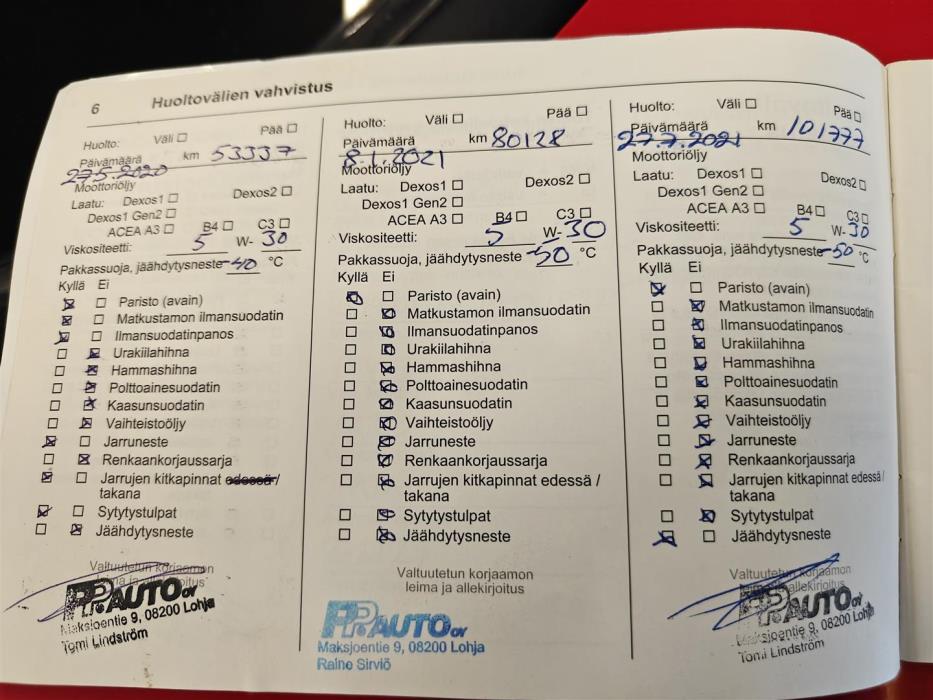 6 Huoltovälien vahvistus
Huolto: Väli Pää
Päivämäärä km 53337
27.5.2020
Moottoriöljy
Laatu: Dexos1 Dexos2
Dexos1 Gen2
ACEA A3 B4 C3
Viskositeetti: 5 W- 30
Pakkassuoja, jäähdytysneste -40 °C
Kyllä Ei
Paristo (avain)
Matkustamon ilmansuodatin
Ilmansuodatinpanos
Urakiilahihna
Hammashihna
Polttoainesuodatin
Kaasunsuodatin
Vaihteistoöljy
Jarruneste
Renkaankorjaussarja
Jarrujen kitkapinnat edessä /
takana
Sytytystulpat
Jäähdytysneste
Valtuutetun korjaamon
leima ja allekirjoitus
PP.AUTO OY
Maksjoentie 9, 08200 Lohja
Tomi Lindström
Huolto: Väli Pää
Päivämäärä km 80128
8.1.2021
Moottoriöljy
Laatu: Dexos1 Dexos2
Dexos1 Gen2
ACEA A3 B4 C3
Viskositeetti: 5 W- 30
Pakkassuoja, jäähdytysneste -50 °C
Kyllä Ei
Paristo (avain)
Matkustamon ilmansuodatin
Ilmansuodatinpanos
Urakiilahihna
Hammashihna
Polttoainesuodatin
Kaasunsuodatin
Vaihteistoöljy
Jarruneste
Renkaankorjaussarja
Jarrujen kitkapinnat edessä /
takana
Sytytystulpat
Jäähdytysneste
Valtuutetun korjaamon
leima ja allekirjoitus
PP.AUTO OY
Maksjoentie 9, 08200 Lohja
Raine Sirviö
Huolto: Väli Pää
Päivämäärä km 101777
27.7.2021
Moottoriöljy
Laatu: Dexos1 Dexos2
Dexos1 Gen2
ACEA A3 B4 C3
Viskositeetti: 5 W- 30
Pakkassuoja, jäähdytysneste -50 °C
Kyllä Ei
Paristo (avain)
Matkustamon ilmansuodatin
Ilmansuodatinpanos
Urakiilahihna
Hammashihna
Polttoainesuodatin
Kaasunsuodatin
Vaihteistoöljy
Jarruneste
Renkaankorjaussarja
Jarrujen kitkapinnat edessä /
takana
Sytytystulpat
Jäähdytysneste
Valtuutetun korjaamon
leima ja allekirjoitus
PP.AUTO OY
Maksjoentie 9, 08200 Lohja
Tomi Lindström